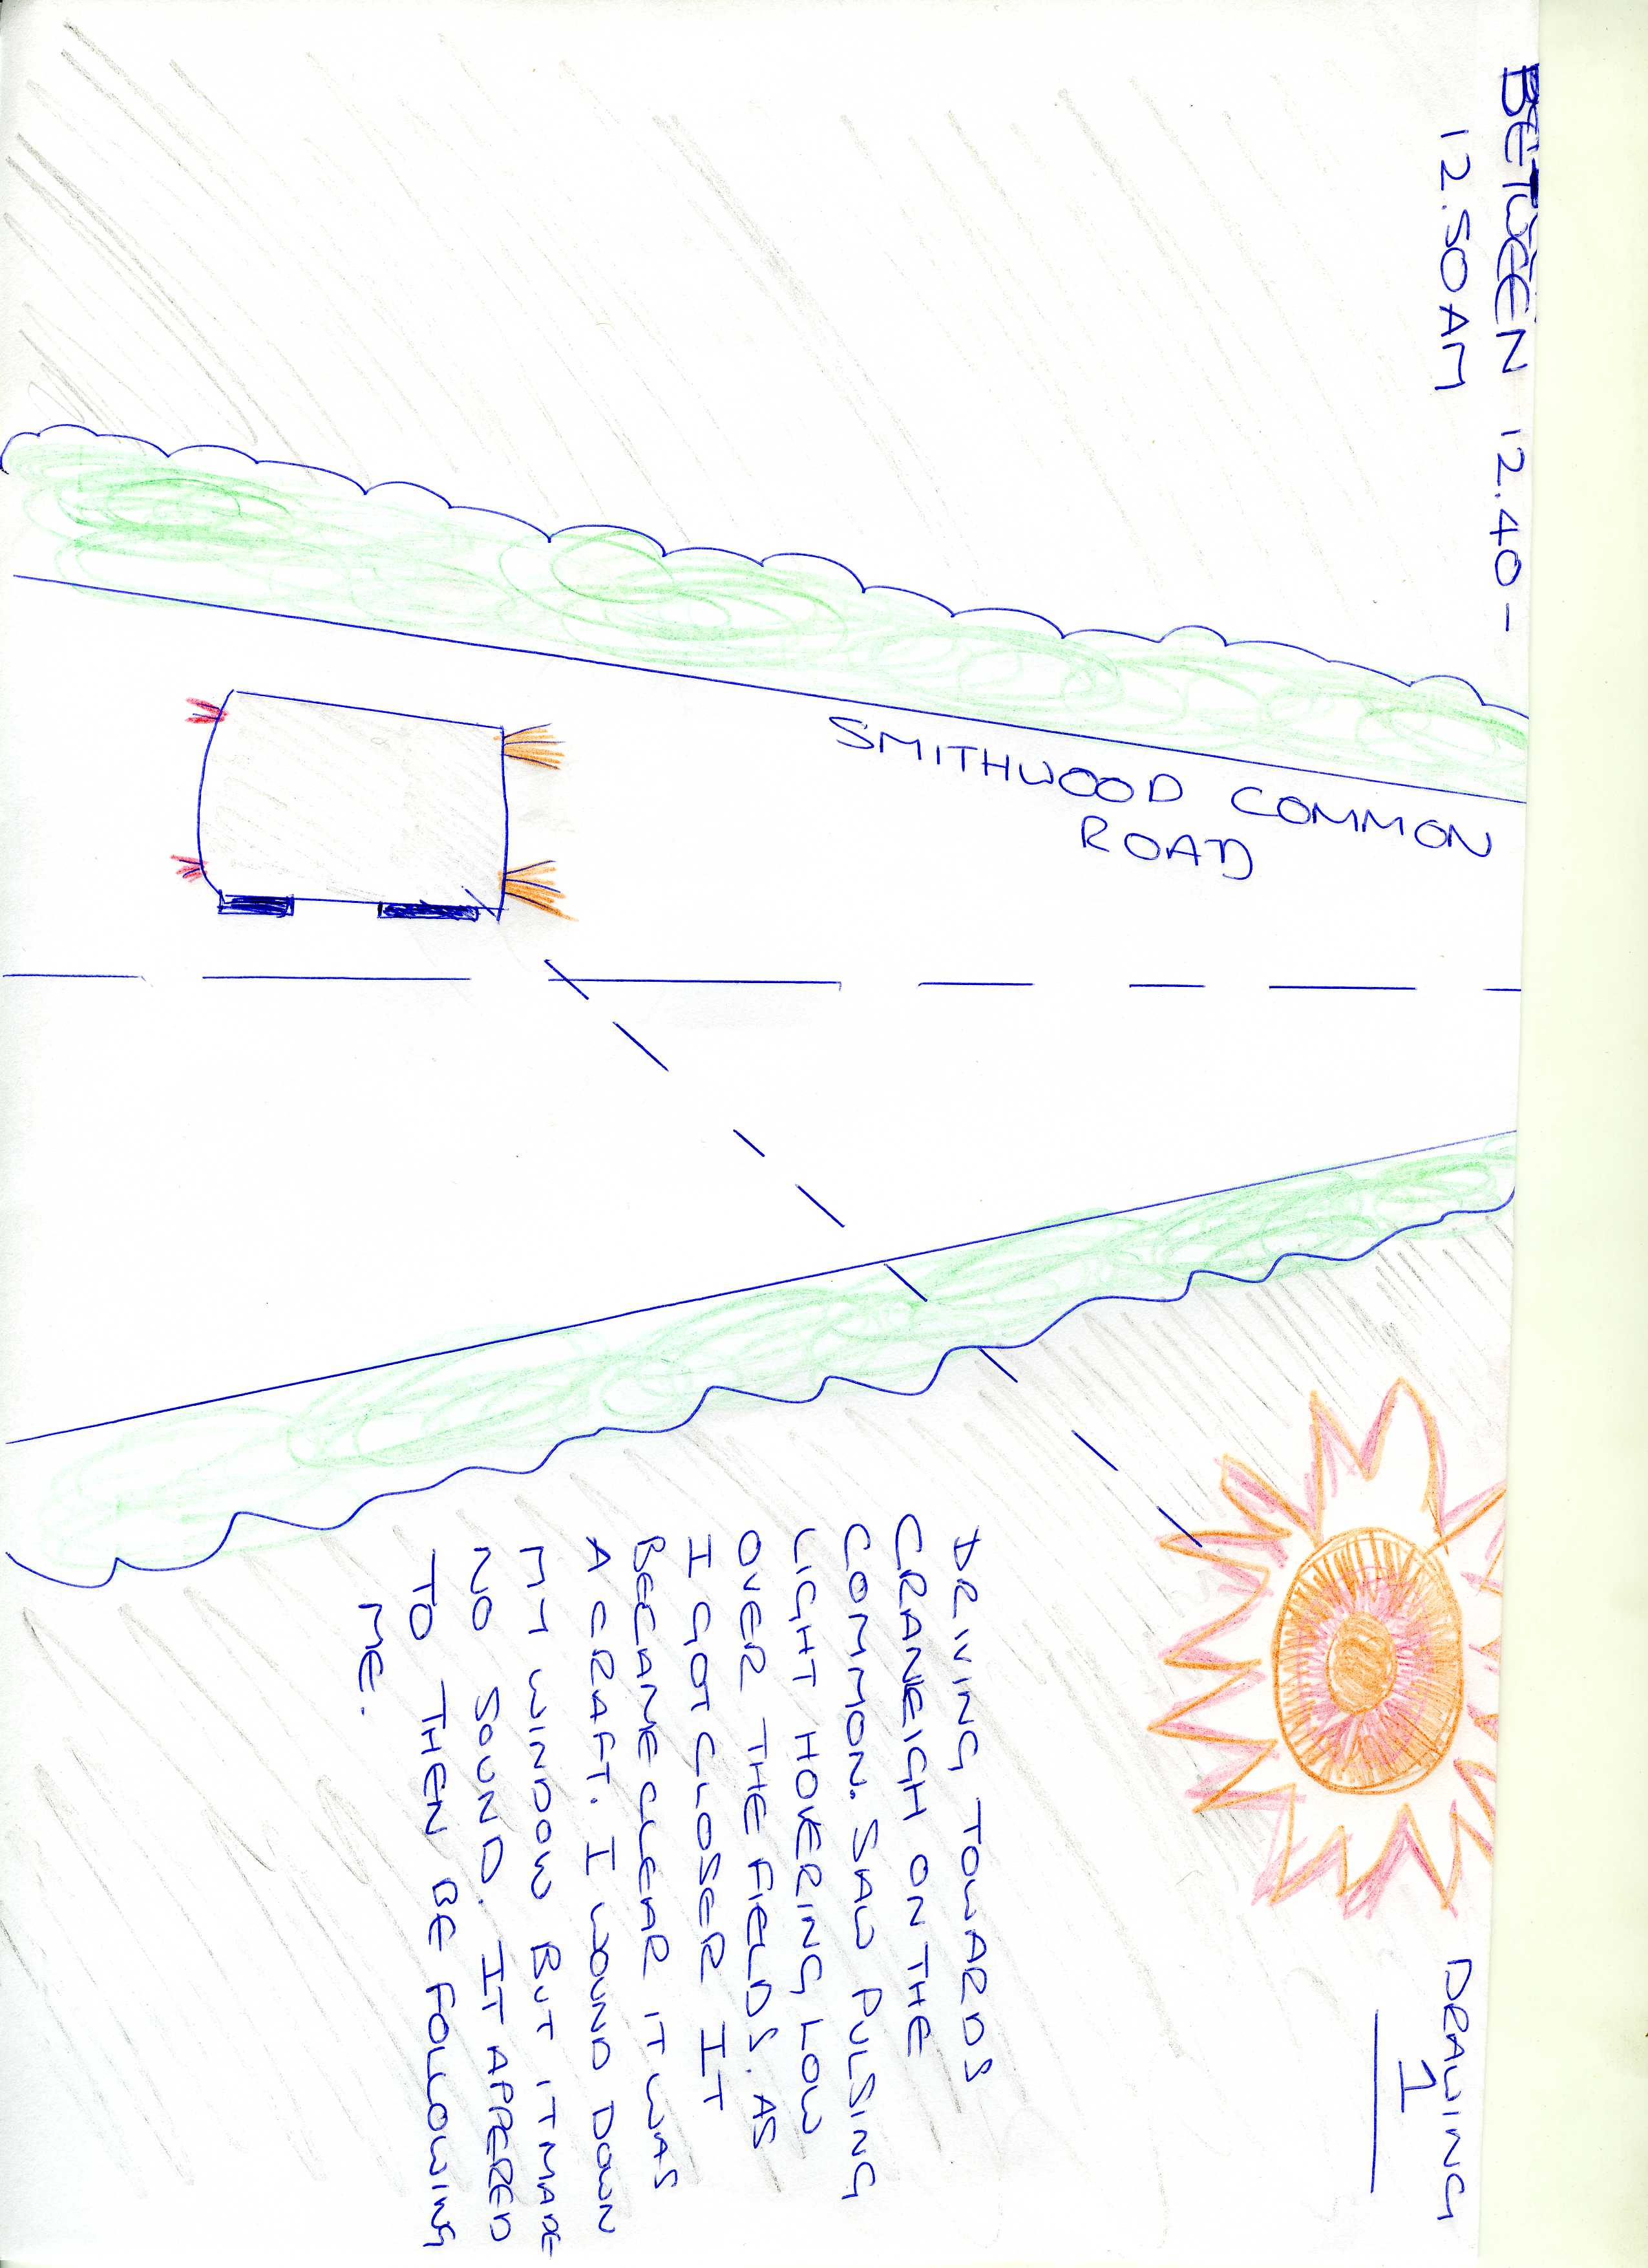 BETWEEN 12.40-
12.50AM
DRAWING
1
SMITHWOOD COMMON
ROAD
DRIVING TOWARDS
CRANLEIGH ON THE
COMMON. SAW PULSING
LIGHT HOVERING LOW
OVER THE FIELDS. AS
I GOT CLOSER IT
BECAME CLEAR IT WAS
A CRAFT. I WOUND DOWN
MY WINDOW BUT IT MADE
NO SOUND. IT APPERED
TO THEN BE FOLLOWING
ME.